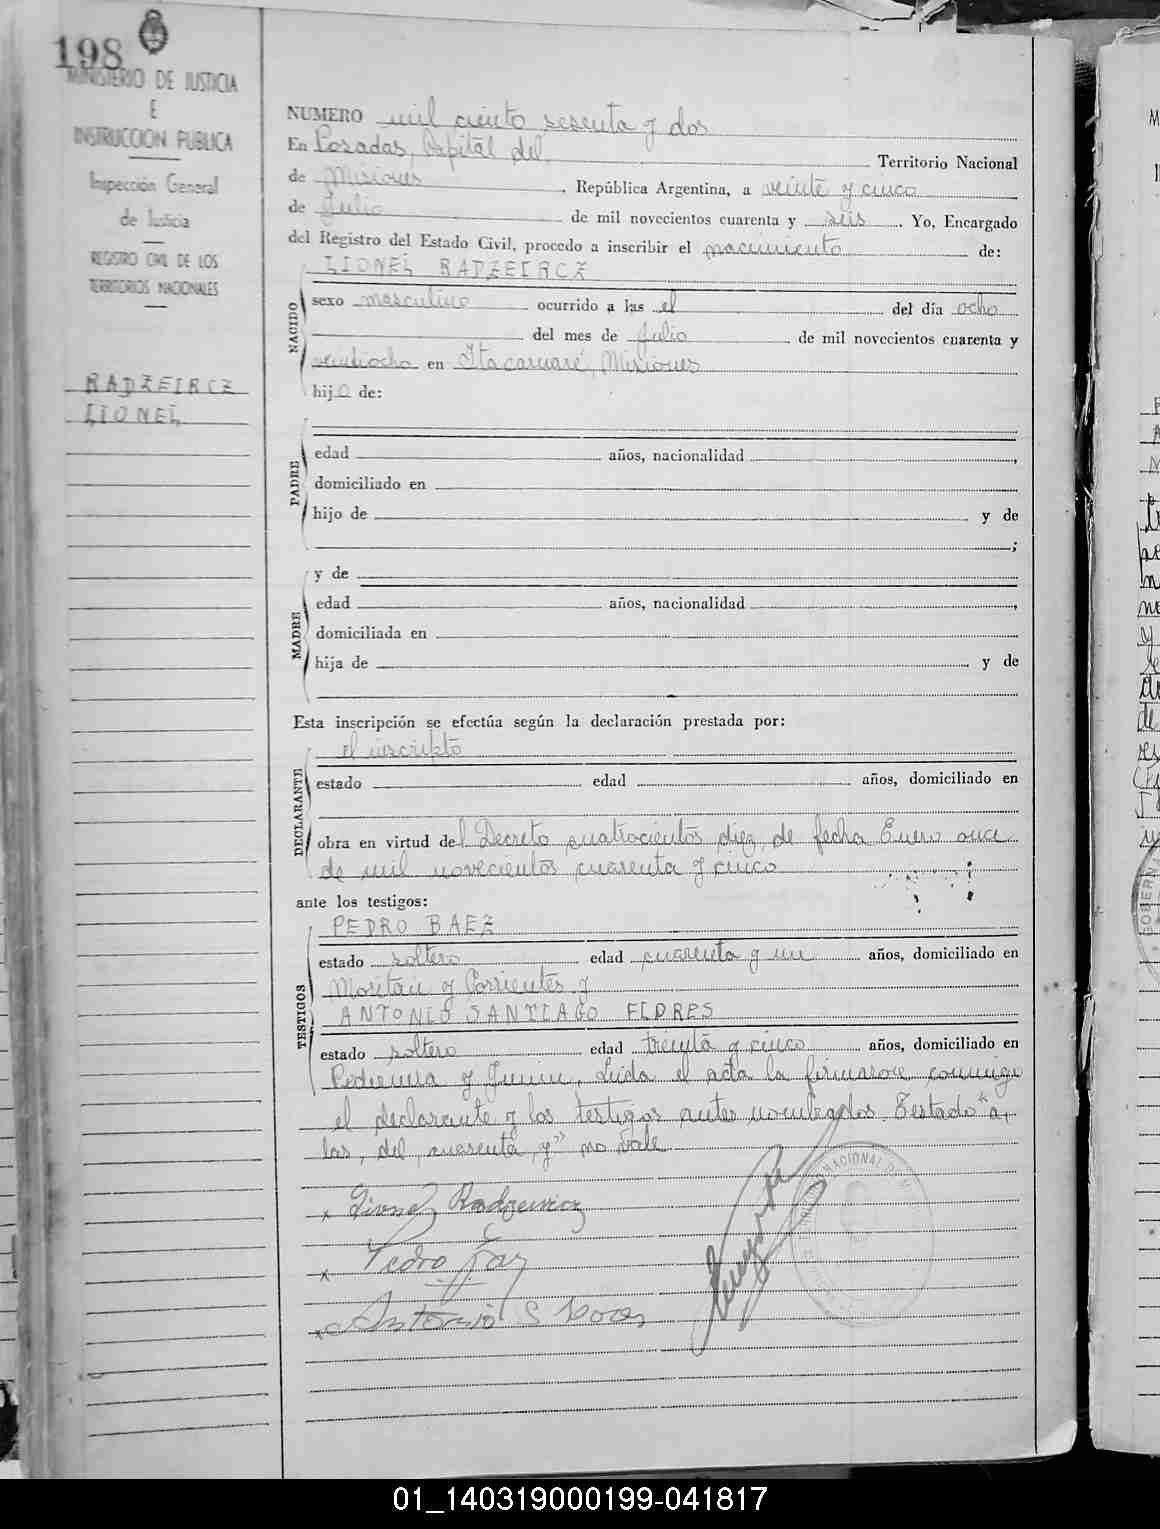 198
MINISTERIO DE JUSTICIA
E
INSTRUCCION PUBLICA
Inspección General
de Justicia
REGISTRO CIVIL DE LOS
TERRITORIOS NACIONALES
RADZEIRCZ
LIONEL
NUMERO mil ciento sesenta y dos
En Posadas, Capital del Territorio Nacional
de Misiones, República Argentina, a veinte y cinco
de Julio de mil novecientos cuarenta y seis. Yo, Encargado
del Registro del Estado Civil, procedo a inscribir el nacimiento de:
LIONEL RADZEIRCZ
NACIDO
sexo masculino ocurrido a las el del día ocho
del mes de Julio de mil novecientos cuarenta y
veintiocho en Itacaruaré, Misiones
hijo de:
PADRE
edad años, nacionalidad ,
domiciliado en
hijo de y de
;
y de
MADRE
edad años, nacionalidad ,
domiciliada en
hija de y de
Esta inscripción se efectúa según la declaración prestada por:
el inscripto
DECLARANTE
estado edad años, domiciliado en
obra en virtud del Decreto cuatrocientos diez, de fecha Enero once
de mil novecientos cuarenta y cinco
ante los testigos:
PEDRO BAEZ
TESTIGOS
estado soltero edad cuarenta y un años, domiciliado en
y Corrientes y
ANTONIO SANTIAGO FLORES
estado soltero edad treinta y cinco años, domiciliado en
y Junin, Leida el acta la firmaron conmigo
el declarante y los testigos antes nombrados. Testado "a,
las, del, cuarenta, y" no vale
x Lionel Radzewicz
x Pedro Baez
x Antonio S
NACIONAL
GOBERN
01_140319000199-041817